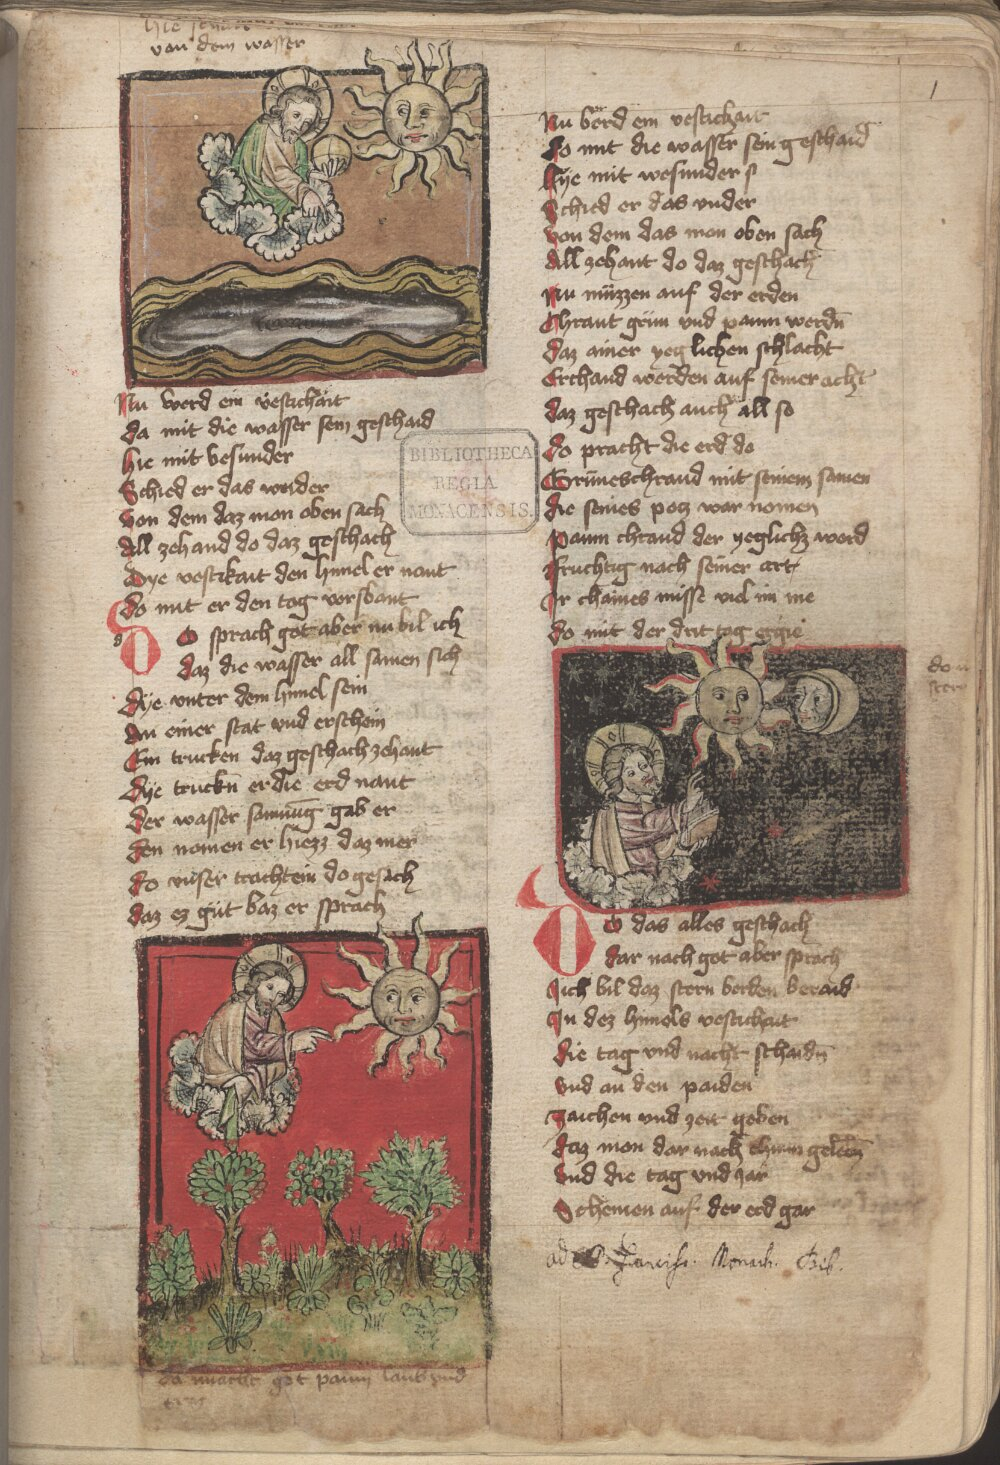 von dem wasser
Nu werd ein vestichait
da mit die wasser sein geschaid
hie mit besunder
Schied er das wnder
von dem daz mon oben sach
All zehand do daz geschach
Dye vestikait den himel er nant
Do mit er den tag vorsbant
DO sprach got aber nu bil ich
daz die wasser all samen sich
Dye vnter dem himel sein
An einer stat vnd erschein
Ein trucken daz geschach zehant
Dye truckn er die erd nant
Der wasser samnug gab er
den nomen er hiezz daz mer
do vnser trachtein do gesach
daz ez gut baz er sprach
da macht got paum laub vnd
1
Nu berd ein vestichait
Do mit die wasser sein geschaid
Hye mit wesunder s
Schied er das vnder
von dem das mon oben sach
All zehant do daz geschach
Nu müzzen auf der erden
Chraut grün vnd paum werdn
daz ainer yeglichen schlacht
Erchand werden auf seiner acht
daz geschach auch all so
do pracht die erd do
Grüneschraud mit seinem samen
die seines poz war nomen
paum chraud der yeglichz word
fruchtig nach seiner art
Ir chaines misse viel im me
do mit der drit tag ergie
DO das alles geschach
dar nach got aber sprach
Jich bil daz stern berden beraid
In dez himels vestichait
die tag vnd nacht schaidn
vnd an den paiden
zaichen vnd zeit geben
daz mon dar nach chum geleben
vnd die tag vnd jar
Schemen auf der erd gar
ad Monach. Bib.
BIBLIOTHECA
REGIA
MONACENSIS.